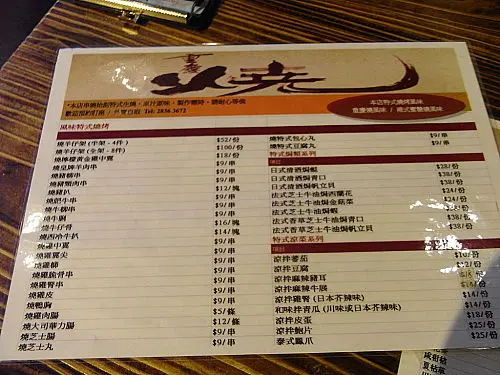 燒
*本店串燒拾款特式生燒，原汁原味，製作需時，請耐心等候
歡迎預約訂座 / 外賣自取 Tel: 2836 3672
本店特式燒烤風味
重慶燒風味 / 港式蜜醬燒風味
風味特式燒烤
燒羊仔架 (半架 - 4件) $52/份
燒羊仔架 (全架 - 8件) $100/份
燒檸檬黃金雞中翼 $18/份
燒皇牌羊肉串 $9/串
燒豬頸串 $9/串
燒豬頸肉串 $9/串
燒豬扒 $12/塊
燒肥牛串 $9/串
燒牛柳串 $9/串
燒牛脷 $9/串
燒牛仔骨 $16/塊
燒西冷牛扒 $14/塊
燒雞中翼 $9/串
燒雞翼尖 $9/串
燒雞腎 $9/串
燒雞脆骨串 $9/串
燒雞腎串 $9/串
燒雞皮 $9/串
燒鴨胸 $9/串
燒雞肉腸 $5/條
燒大司華力腸 $12/條
燒芝士腸 $9/串
燒芝士丸 $9/串
燒特式包心丸 $9/串
燒特式豆腐丸 $9/串
特式焗類系列
項目
日式清酒焗蜆 $28/份
日式清酒焗青口 $38/份
日式清酒焗帆立貝 $38/份
法式芝士牛油焗西蘭花 $24/份
法式芝士牛油焗金菇菜 $24/份
法式芝士牛油焗蝦 $38/份
法式香草芝士牛油焗青口 $38/份
法式香草芝士牛油焗帆立貝 $38/份
特式涼菜系列
項目
涼拌蕃茄 $10/份
涼拌豆腐 $12/份
涼拌麻辣豬耳 $18/份
涼拌麻辣牛展
涼拌雞腎 (日本芥辣味) $14/份
和味拌青瓜 (川味或日本芥辣味) $14/份
涼拌皮蛋 $18/份
涼拌鮑片 $25/份
泰式鳳爪 $25/份